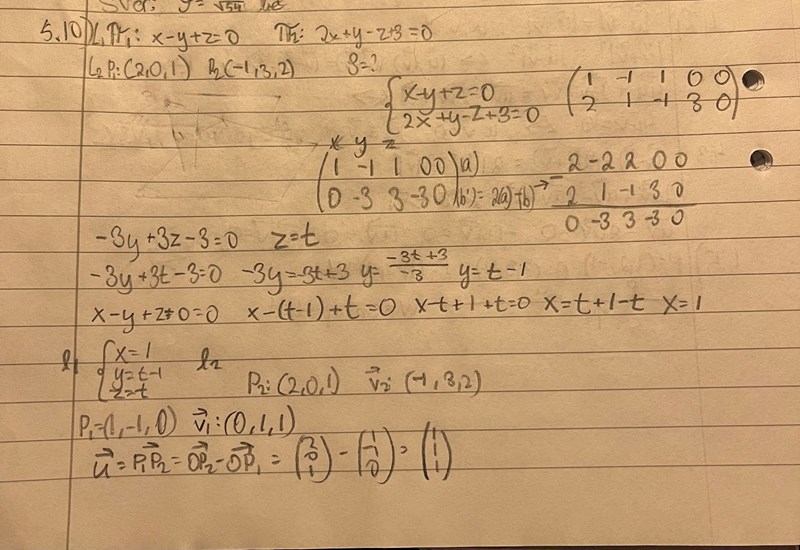 Svar: 
5.10) L1 π1: x-y+z=0 π2: 2x+y-z+3=0
L2 P1:(2,0,1) P2(-1,3,2) S=?
{x-y+z=0
2x+y-z+3=0
(1 -1 1 0 0
2 1 -1 3 0)
x y z
(1 -1 1 0 0)(a)
0 -3 3 -3 0 (b')=2(a)-(b) →
- 2 -2 2 0 0
2 1 -1 3 0
0 -3 3 -3 0
-3y+3z-3=0 z=t
-3y+3t-3=0 -3y=-3t+3 y=(-3t+3)/-3 y=t-1
x-y+z+0=0 x-(t-1)+t=0 x-t+1+t=0 x=t+1-t x=1
l1 {x=1
y=t-1
z=t
l2
P2:(2,0,1) v2:(-1,3,2)
P1=(1,-1,0) v1:(0,1,1)
u=P1P2=OP2-OP1=(2 0 1)-(1 -1 0)=(1 1 1)